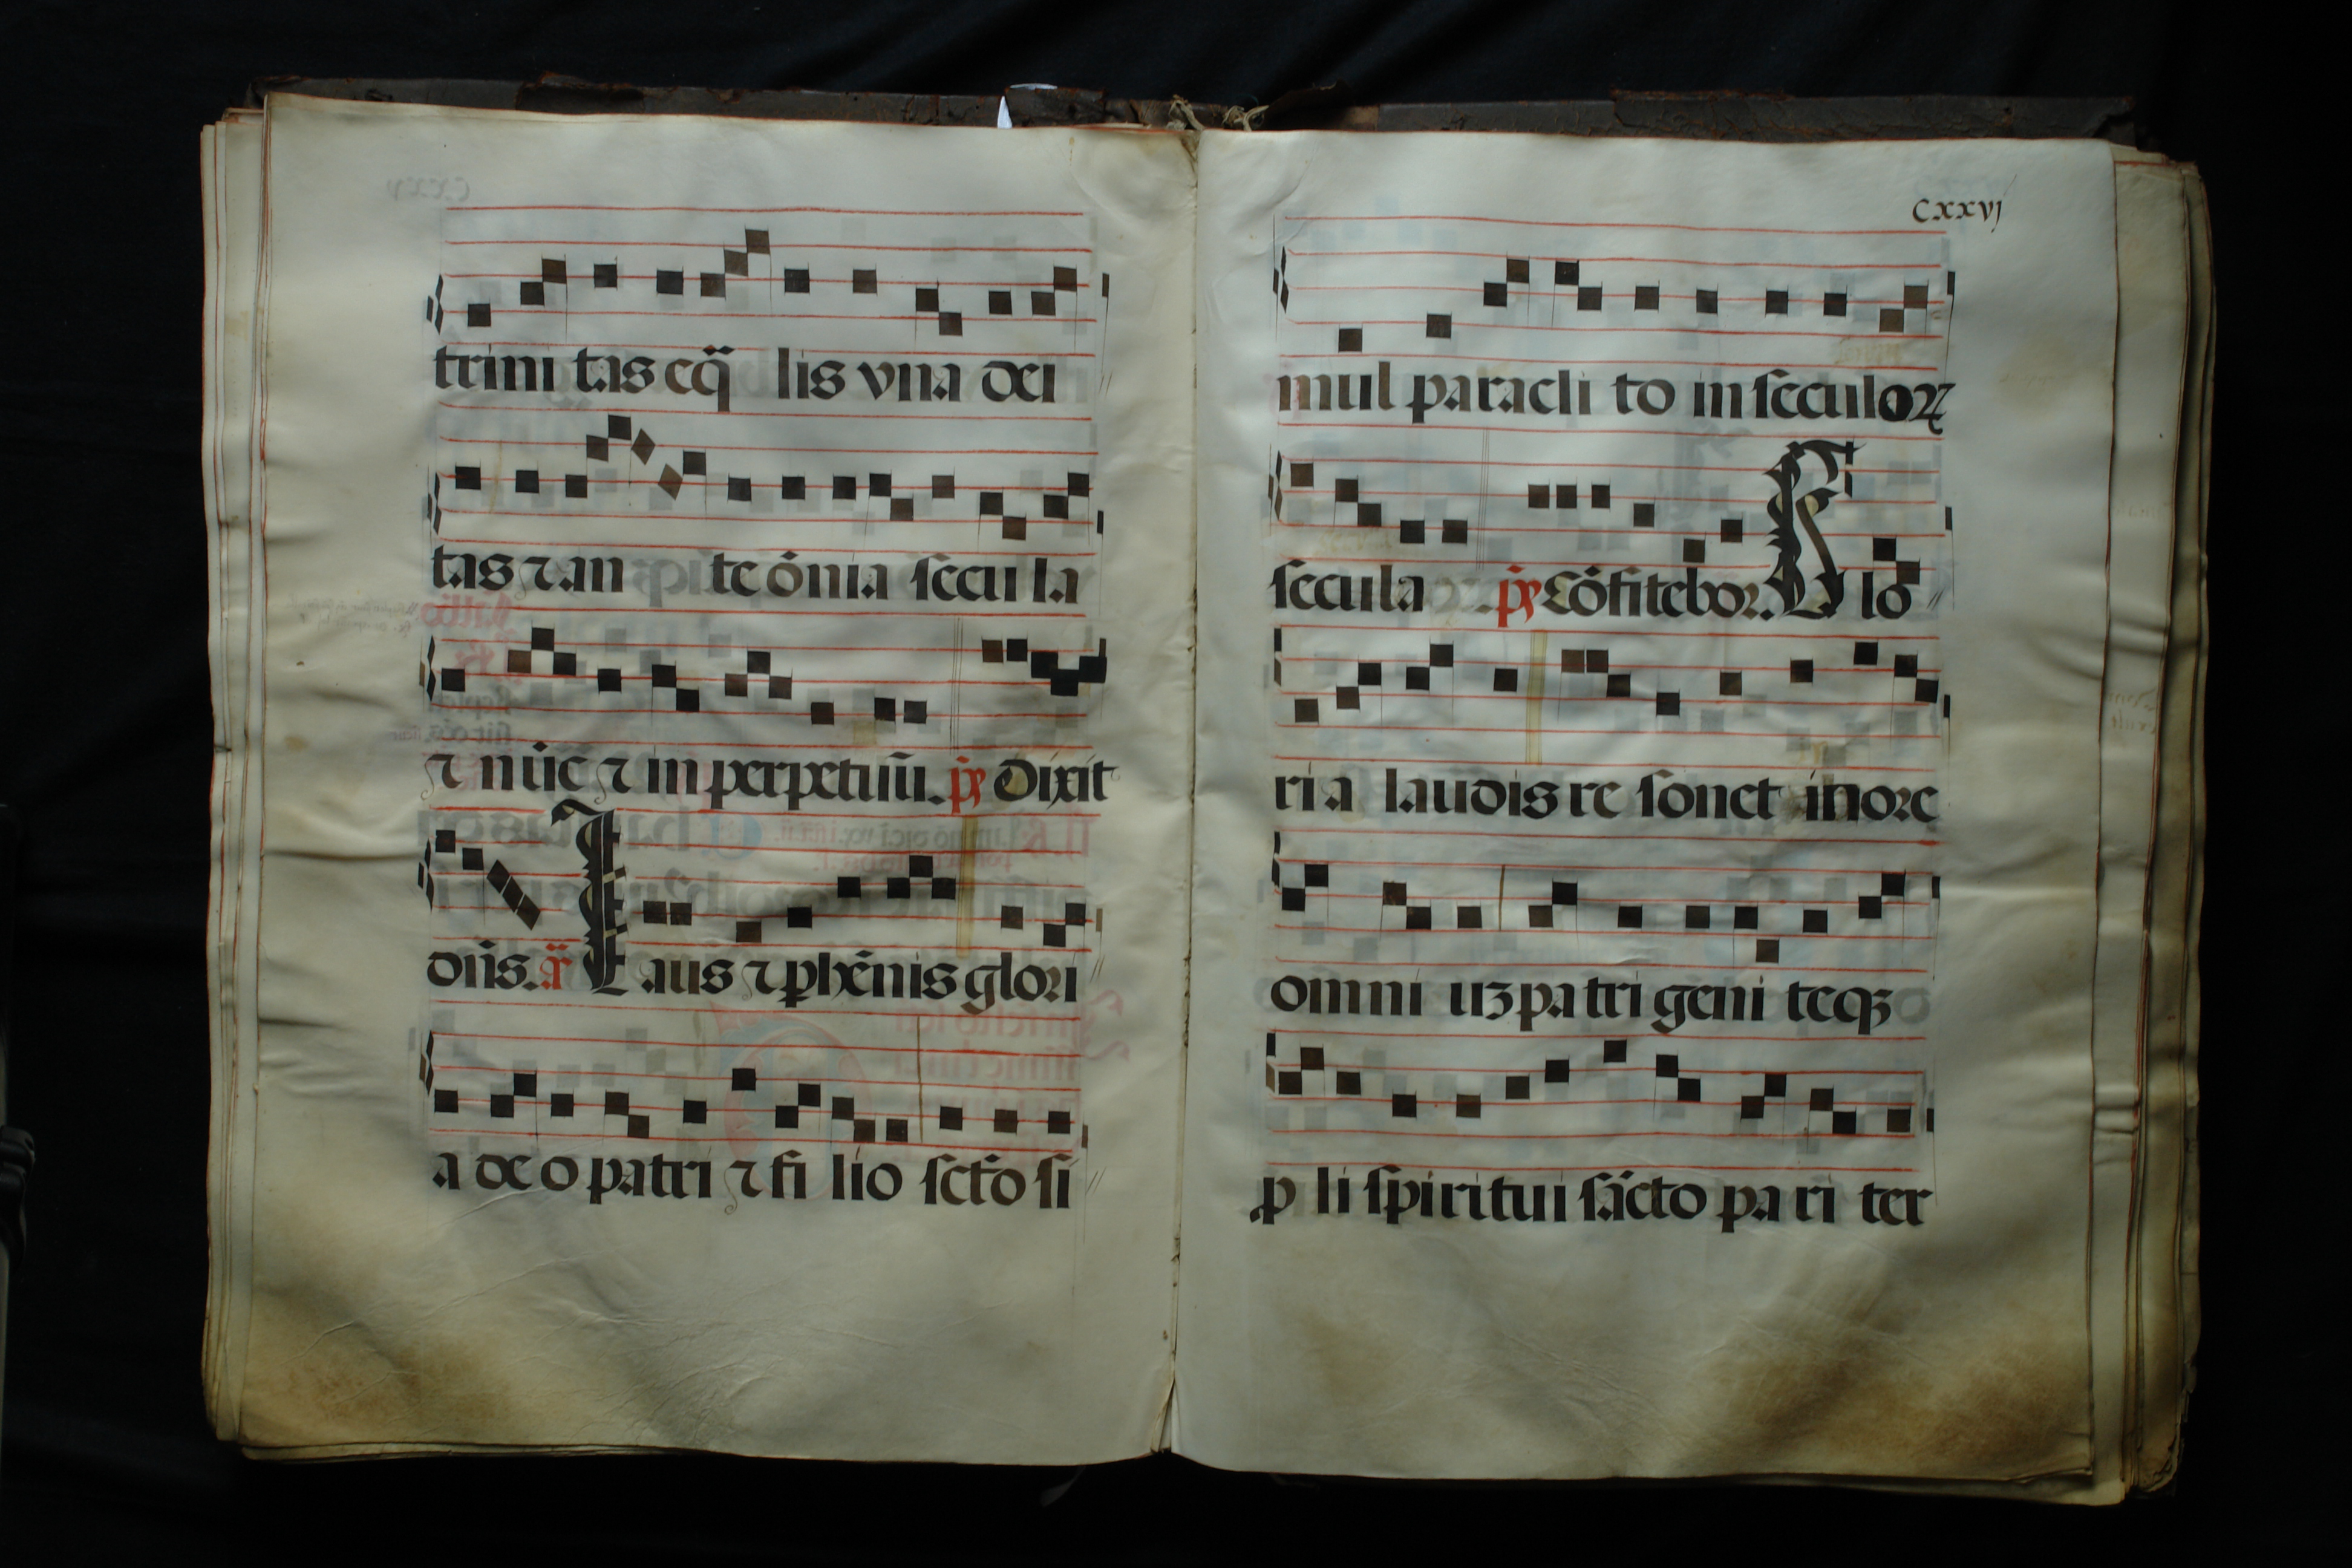 trini tas eq̈ lis vna dei
tas ⁊ an te ōnia secu la
⁊ nūc ⁊ in perpetuū. pͤs Dixit
dn̄s. an̄ Laus ⁊ ꝑhēnis glori
a deo patri ⁊ fi lio scto si
cxxvj
mul paracli to in seculoꝝ
secula pͤs Cōfitebor. Glo
ri a laudis re sonet in ore
omni uꝫ patri geni teqꝫ
ꝓ li spiritui sācto pa ri ter